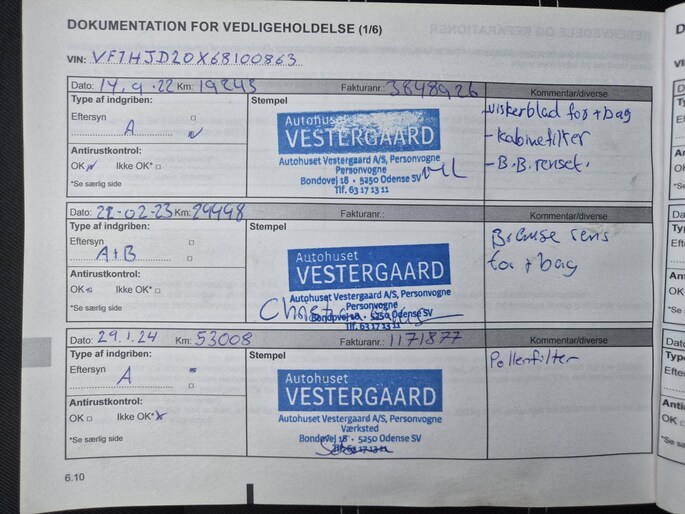 DOKUMENTATION FOR VEDLIGEHOLDELSE (1/6)
VIN: VF1HJD20X68100863
Dato: 14.9.22 Km: 19243 Fakturanr.: 3848926 Kommentar/diverse
Type af indgriben: Stempel
Eftersyn
A
Antirustkontrol:
OK Ikke OK*
*Se særlig side
Autohuset
VESTERGAARD
Autohuset Vestergaard A/S, Personvogne
Personvogne
Bondovej 18 • 5250 Odense SV
Tlf. 63 17 13 11
viskerblad for + bag
- Kabinefilter
- B.B. renset.
Dato: 22-02-23 Km: 29498 Fakturanr.: Kommentar/diverse
Type af indgriben: Stempel
Eftersyn
A+B
Antirustkontrol:
OK Ikke OK*
*Se særlig side
Autohuset
VESTERGAARD
Autohuset Vestergaard A/S, Personvogne
Personvogne
Bondovej 18 • 5250 Odense SV
Tlf. 63 17 13 11
Bremse rens
for + bag
Dato: 29.1.24 Km: 53008 Fakturanr.: 1171877 Kommentar/diverse
Type af indgriben: Stempel
Eftersyn
A
Antirustkontrol:
OK Ikke OK*
*Se særlig side
Autohuset
VESTERGAARD
Autohuset Vestergaard A/S, Personvogne
Værksted
Bondovej 18 • 5250 Odense SV
Tlf. 63 17 13 11
Pollenfilter
6.10